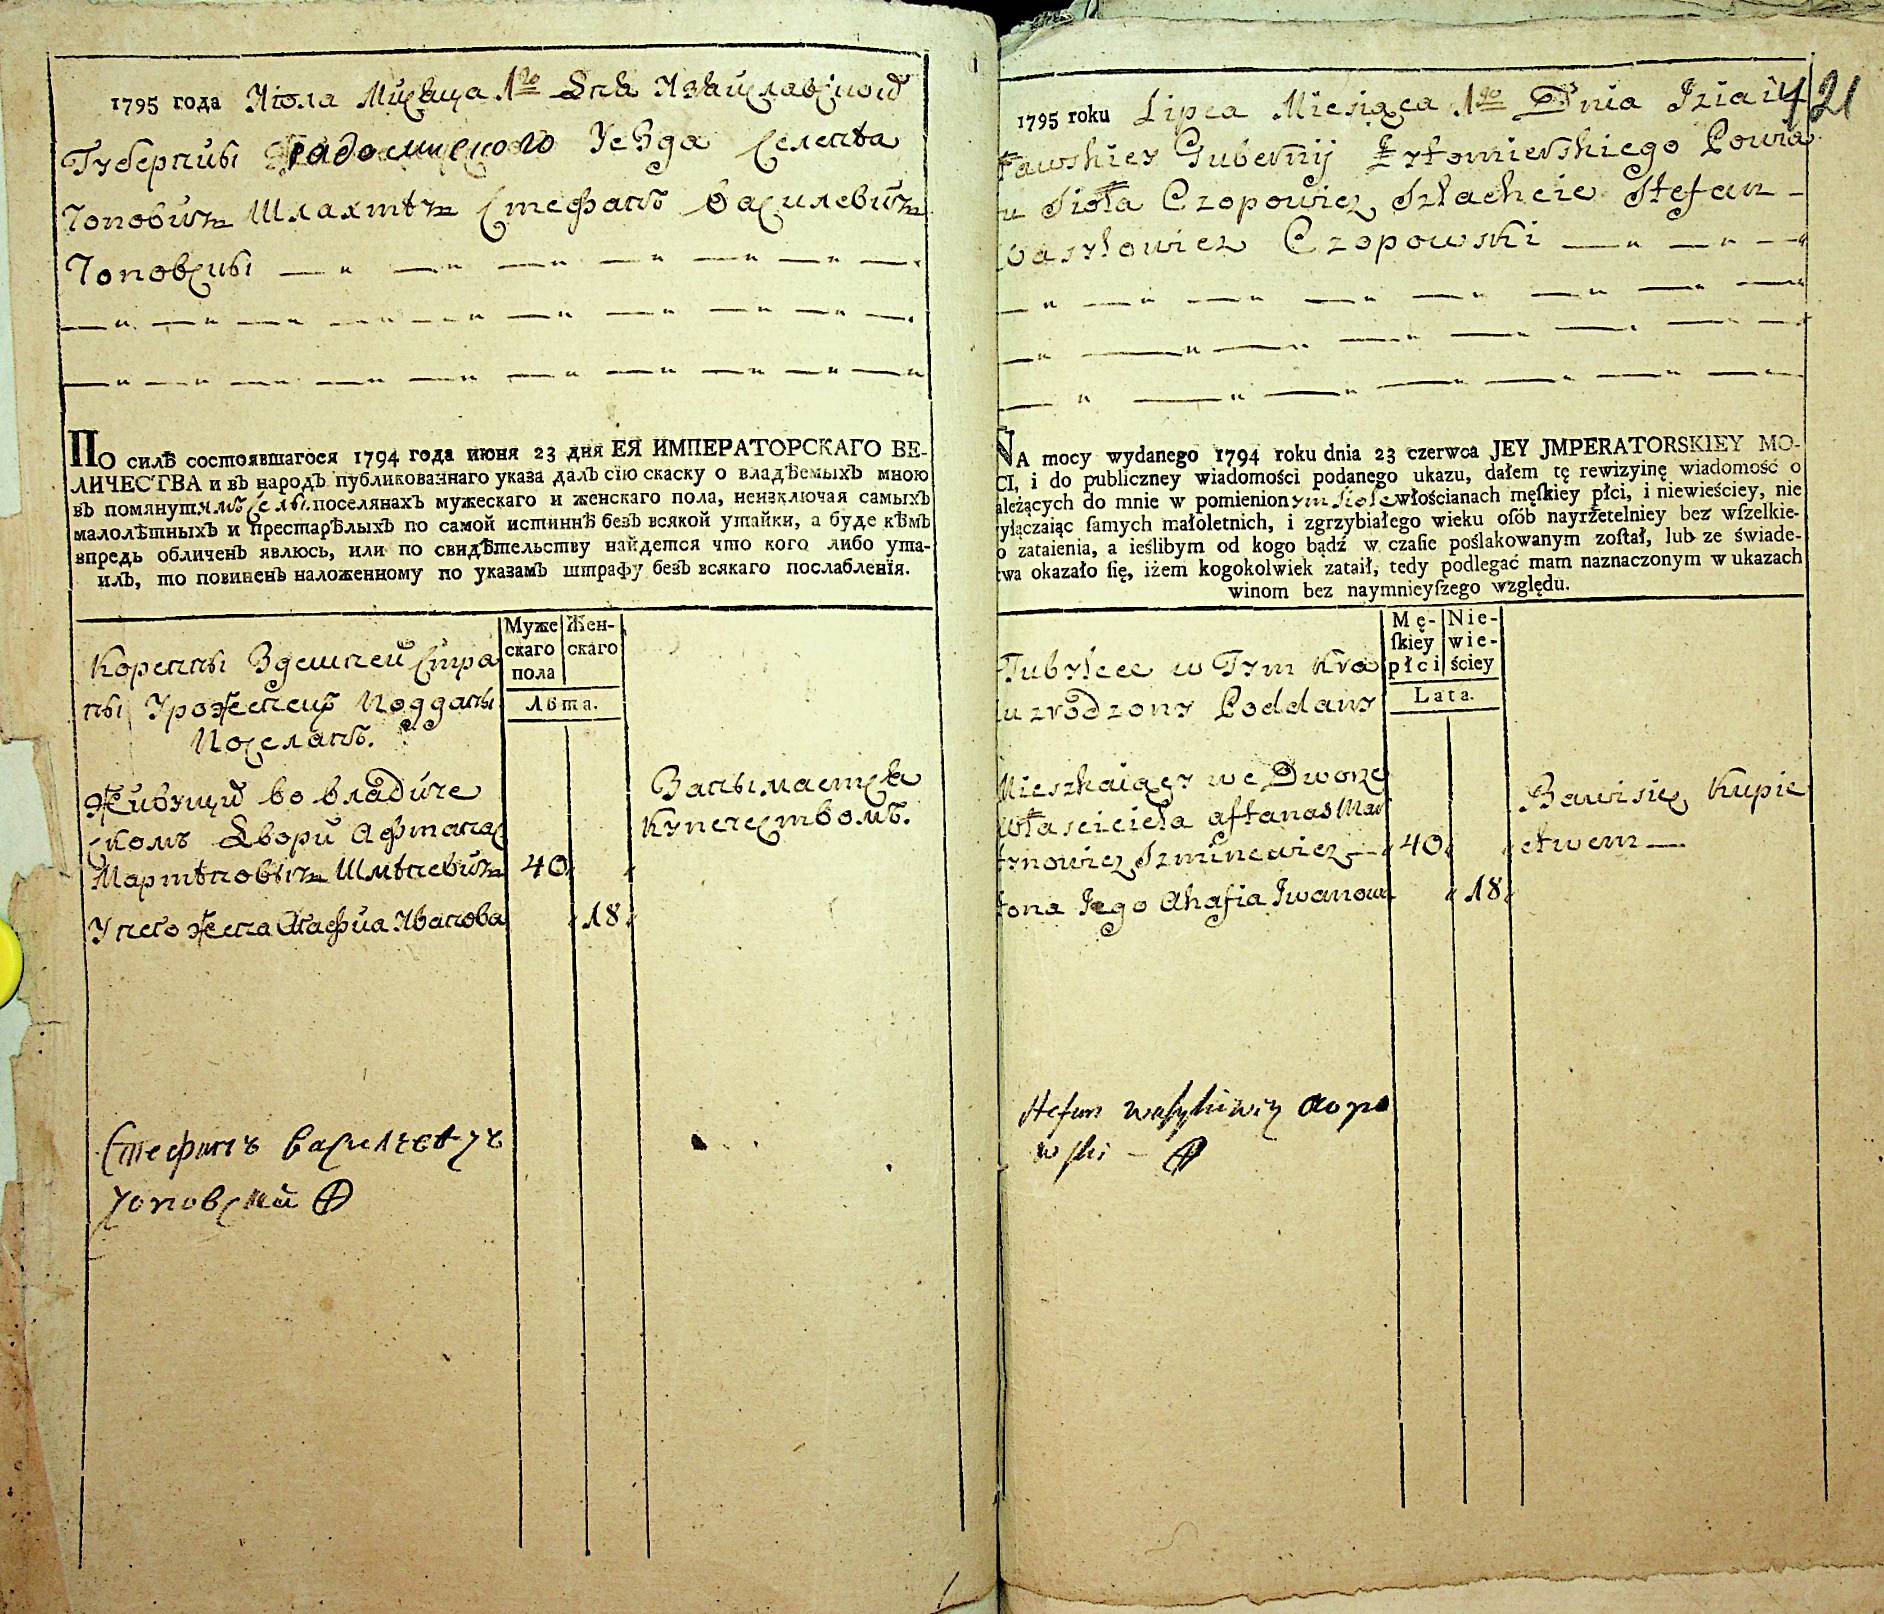 1795 года Июля Мисяца 1го Дня Изяиславской
Губернии Радомиского Уезда Селения
Чопович Шляхтич Стефанъ Василевич
Чоповски
ПО силѣ состоявшагося 1794 года июня 23 дня ЕЯ ИМПЕРАТОРСКАГО ВЕ-
ЛИЧЕСТВА и въ народъ публикованнаго указа далъ сїю скаску о владѣемыхъ мною
въ помянутимъ Селы поселянахъ мужескаго и женскаго пола, неизключая самыхъ
малолѣтныхъ и престарѣлыхъ по самой истиннѣ безъ всякой утайки, а буде кѣмъ
впредь обличенъ явлюсь, или по свидѣтельству найдется что кого либо ута-
илъ, то повиненъ наложенному по указамъ штрафу безъ всякаго послабленїя.
Муже
скаго
пола
Жен-
скаго
Лѣта.
Коренны Здешней Стра
ны Уроженец Поддани
Поселанъ.
Живущий во владиче
скомъ Двори Афтанас
Мартинович Шминевич 40
Занымается
Купечествомъ.
У него жена Агафиа Иванова 18
Стефанъ Василевич
Чоповский
421
1795 roku Lipca Miesiąca 1go Dnia Iziai
sławskiey Gubernij Żytomierskiego Powia
u Sioła Czopowicz Szlachcic Stefan
Wasylowicz Czopowski
NA mocy wydanego 1794 roku dnia 23 czerwca JEY JMPERATORSKIEY MO-
CI, i do publiczney wiadomości podanego ukazu, dałem tę rewizyinę wiadomość o
ależących do mnie w pomienionym siole włościanach męſkiey płci, i niewieściey, nie
yłączaiąc ſamych małoletnich, i zgrzybiałego wieku oſób nayrzetelniey bez wſzelkie-
o zataienia, a ieślibym od kogo bądź w czaſie poślakowanym zoſtał, lub ze świade-
twa okazało ſię, iżem kogokolwiek zataił, tedy podlegać mam naznaczonym w ukazach
winom bez naymnieyſzego względu.
Mę-
ſkiey
płci
Nie-
wie-
ściey
Lata.
Tubylcec w Tym Kra
u zrodzony Poddany
Mieszkaiący we Dworze
Właściciela Aftanas Mar
tynowicz Szminewicz 40
Bawi się Kupie
ctwem
żona Jego Ahafia Iwanow 18
Stefan Wasylowicz Czopo
wski